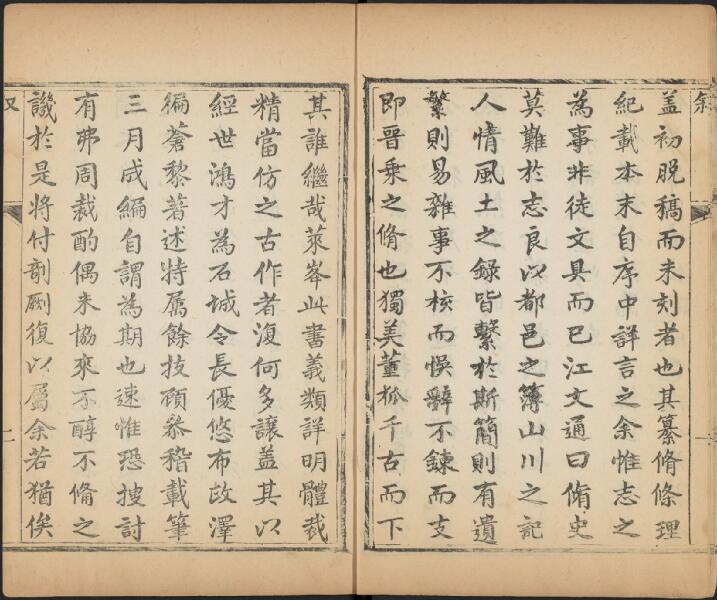 叙
蓋初脱稿而未刻者也其纂脩條理
紀載本末自序中詳言之余惟志之
為事非徒文具而已江文通曰脩史
莫難於志良以都邑之簿山川之記
人情風土之錄皆繫於斯簡則有遺
繁則易雜事不核而悞辭不鍊而支
即晋乗之脩也獨美董狐千古而下
一
其誰繼哉萊峯此書義類詳明體裁
精當仿之古作者復何多讓盖其以
經世鴻才為石城令長優悠布政澤
徧蒼黎著述特属餘技顧叅稽載筆
三月成編自謂為期也速惟恐搜討
有弗周裁酌偶未協來不醇不備之
譏於是將付剞劂復以属余若猶俟
二